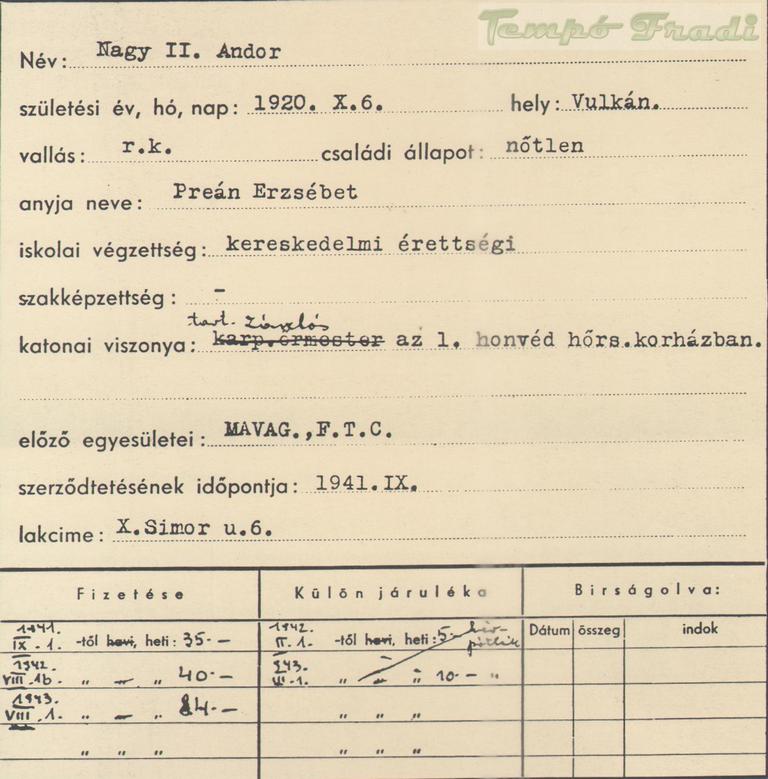 Tempó Fradi
Név: Nagy II. Andor
születési év, hó, nap: 1920. X.6. hely: Vulkán.
vallás: r.k. családi állapot: nőtlen
anyja neve: Preán Erzsébet
iskolai végzettség: kereskedelmi érettségi
szakképzettség: -
tart. zászlós
katonai viszonya: karp.őrmester az 1. honvéd hőrs.korházban.
előző egyesületei: MAVAG.,F.T.C.
szerződtetésének időpontja: 1941.IX.
lakcime: X.Simor u.6.
Fizetése Külön járuléka Birságolva:
1941. IX.1. -től havi, heti: 35.- 1942. II.1. -től havi, heti: 5.- Dátum összeg indok
1942. VIII.16. " " " 40.- 943. III.1. " " " 10.- "
1943. VIII.1. " " " 84.- " " "
" " " " " "